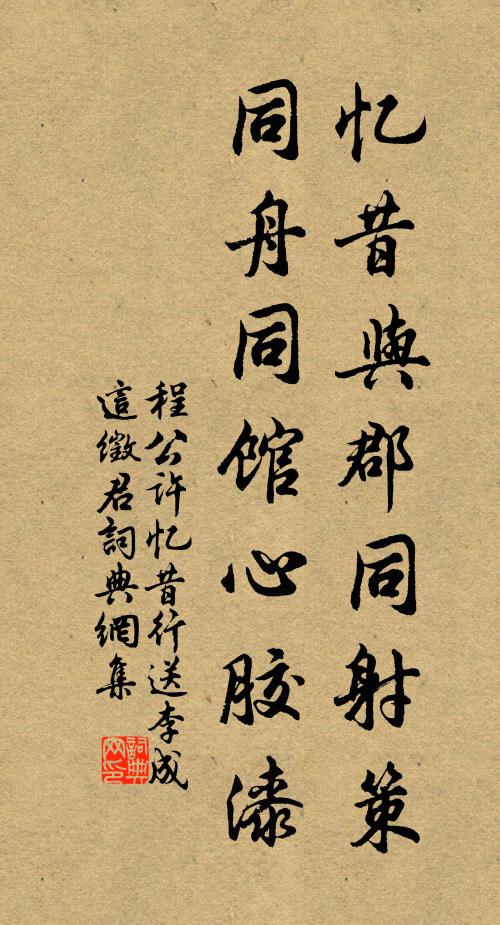 忆昔與郡同射策
同舟同馆心胶漆
程公许忆昔行送李成
這徵君詞典網集
詞典
网印